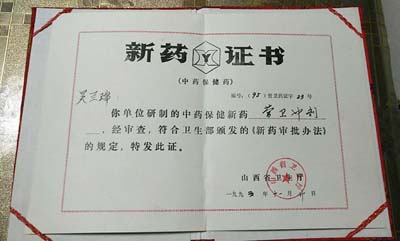 新药证书
(中药保健药)
编号：(95)晋卫药试字23号
吴兰锋
你单位研制的中药保健新药 营卫冲剂
，经审查，符合卫生部颁发的《新药审批办法》
的规定，特发此证。
山西省卫生厅
一九九
年十一月
日